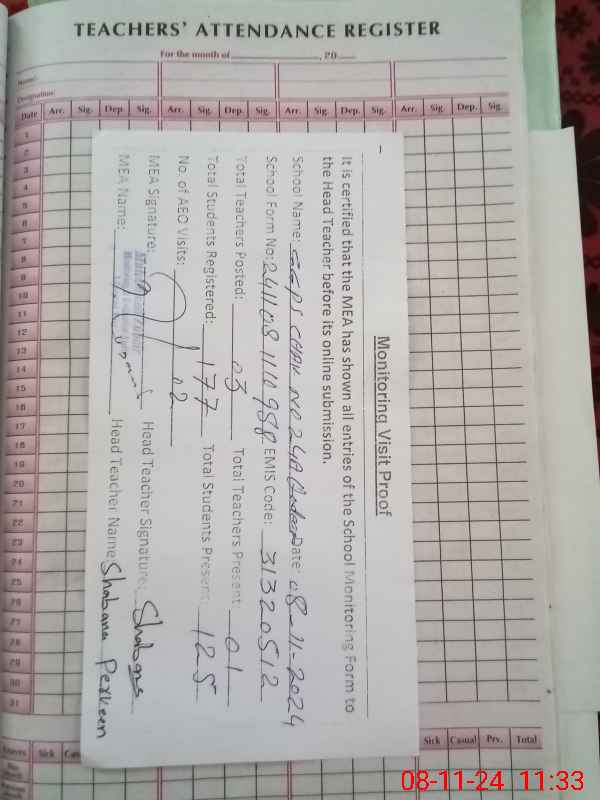 TEACHERS' ATTENDANCE REGISTER
For the month of ____________, 20____
Name:
Designation:
Date Arr. Sig. Dep. Sig. Arr. Sig. Dep. Sig. Arr. Sig. Dep. Sig. Arr. Sig. Dep. Sig.
1
2
3
4
5
6
7
8
9
10
11
12
13
14
15
16
17
18
19
20
21
22
23
24
25
26
27
28
29
30
31
Monitoring Visit Proof
It is certified that the MEA has shown all entries of the School Monitoring Form to
the Head Teacher before its online submission.
School Name: GGPS CHAK NO 24A Date: 08-11-2024
School Form No: 241108110988 EMIS Code: 31320512
Total Teachers Posted: 03 Total Teachers Present: 01
Total Students Registered: 177 Total Students Present: 125
No. of AEO Visits: 02
MEA Signature: Head Teacher Signature: Shabana
MEA Name: Head Teacher Name: Shabana Perveen
Leaves Sick Sick Casual Prv. Total
08-11-24 11:33